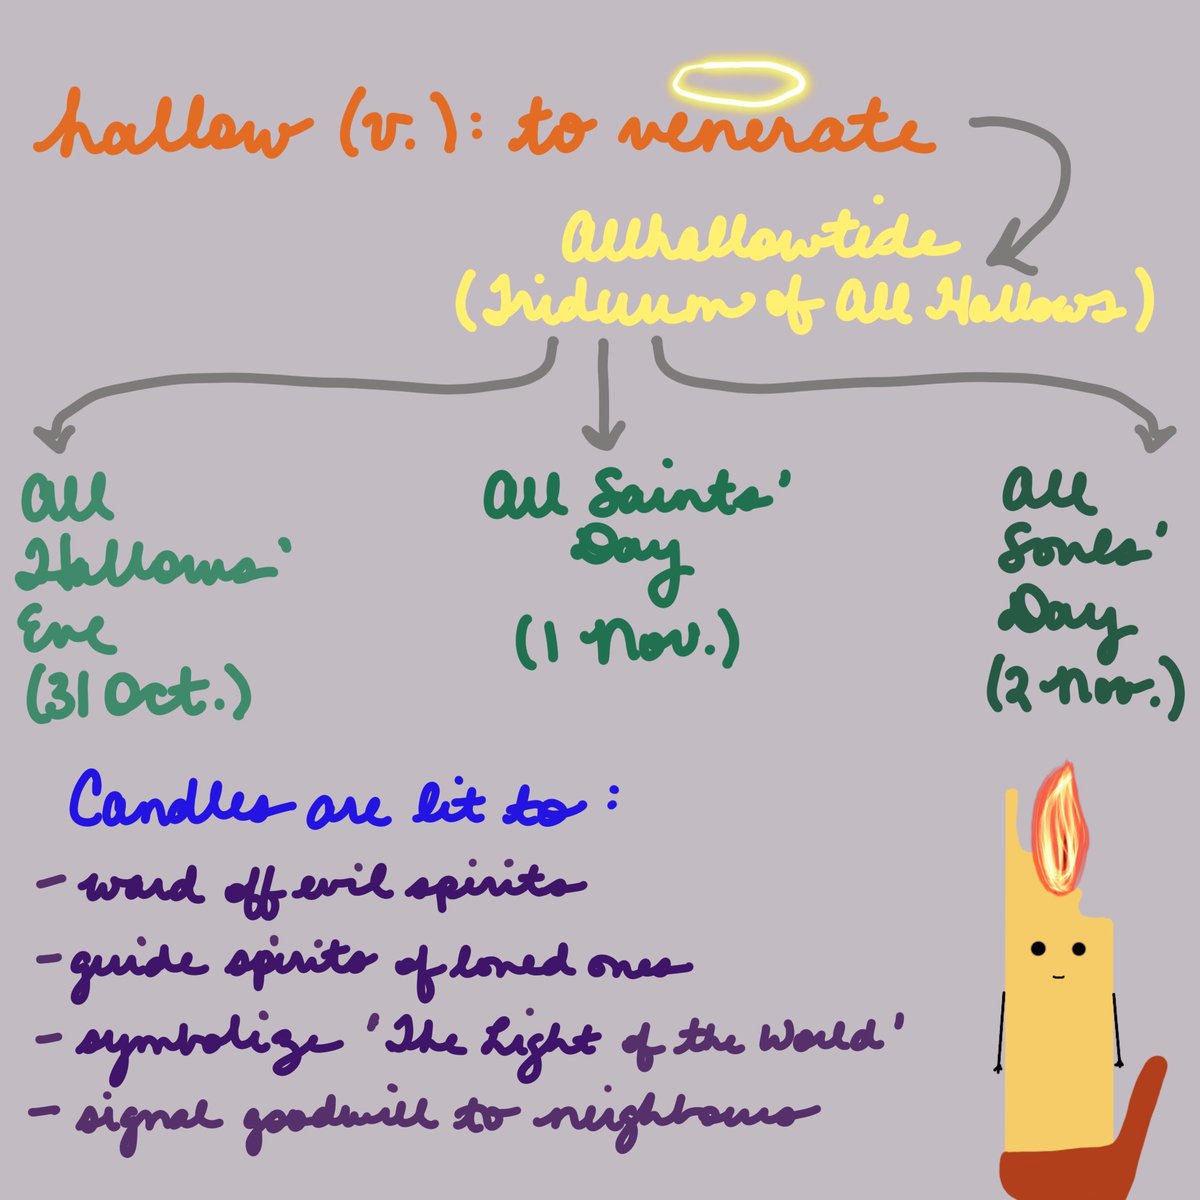 hallow (v.): to venerate
Allhallowtide
(Triduum of All Hallows)
All
Hallows'
Eve
(31 Oct.)
All Saints'
Day
(1 Nov.)
All
Souls'
Day
(2 Nov.)
Candles are lit to:
- ward off evil spirits
- guide spirits of loved ones
- symbolize 'The Light of the World'
- signal goodwill to neighbours